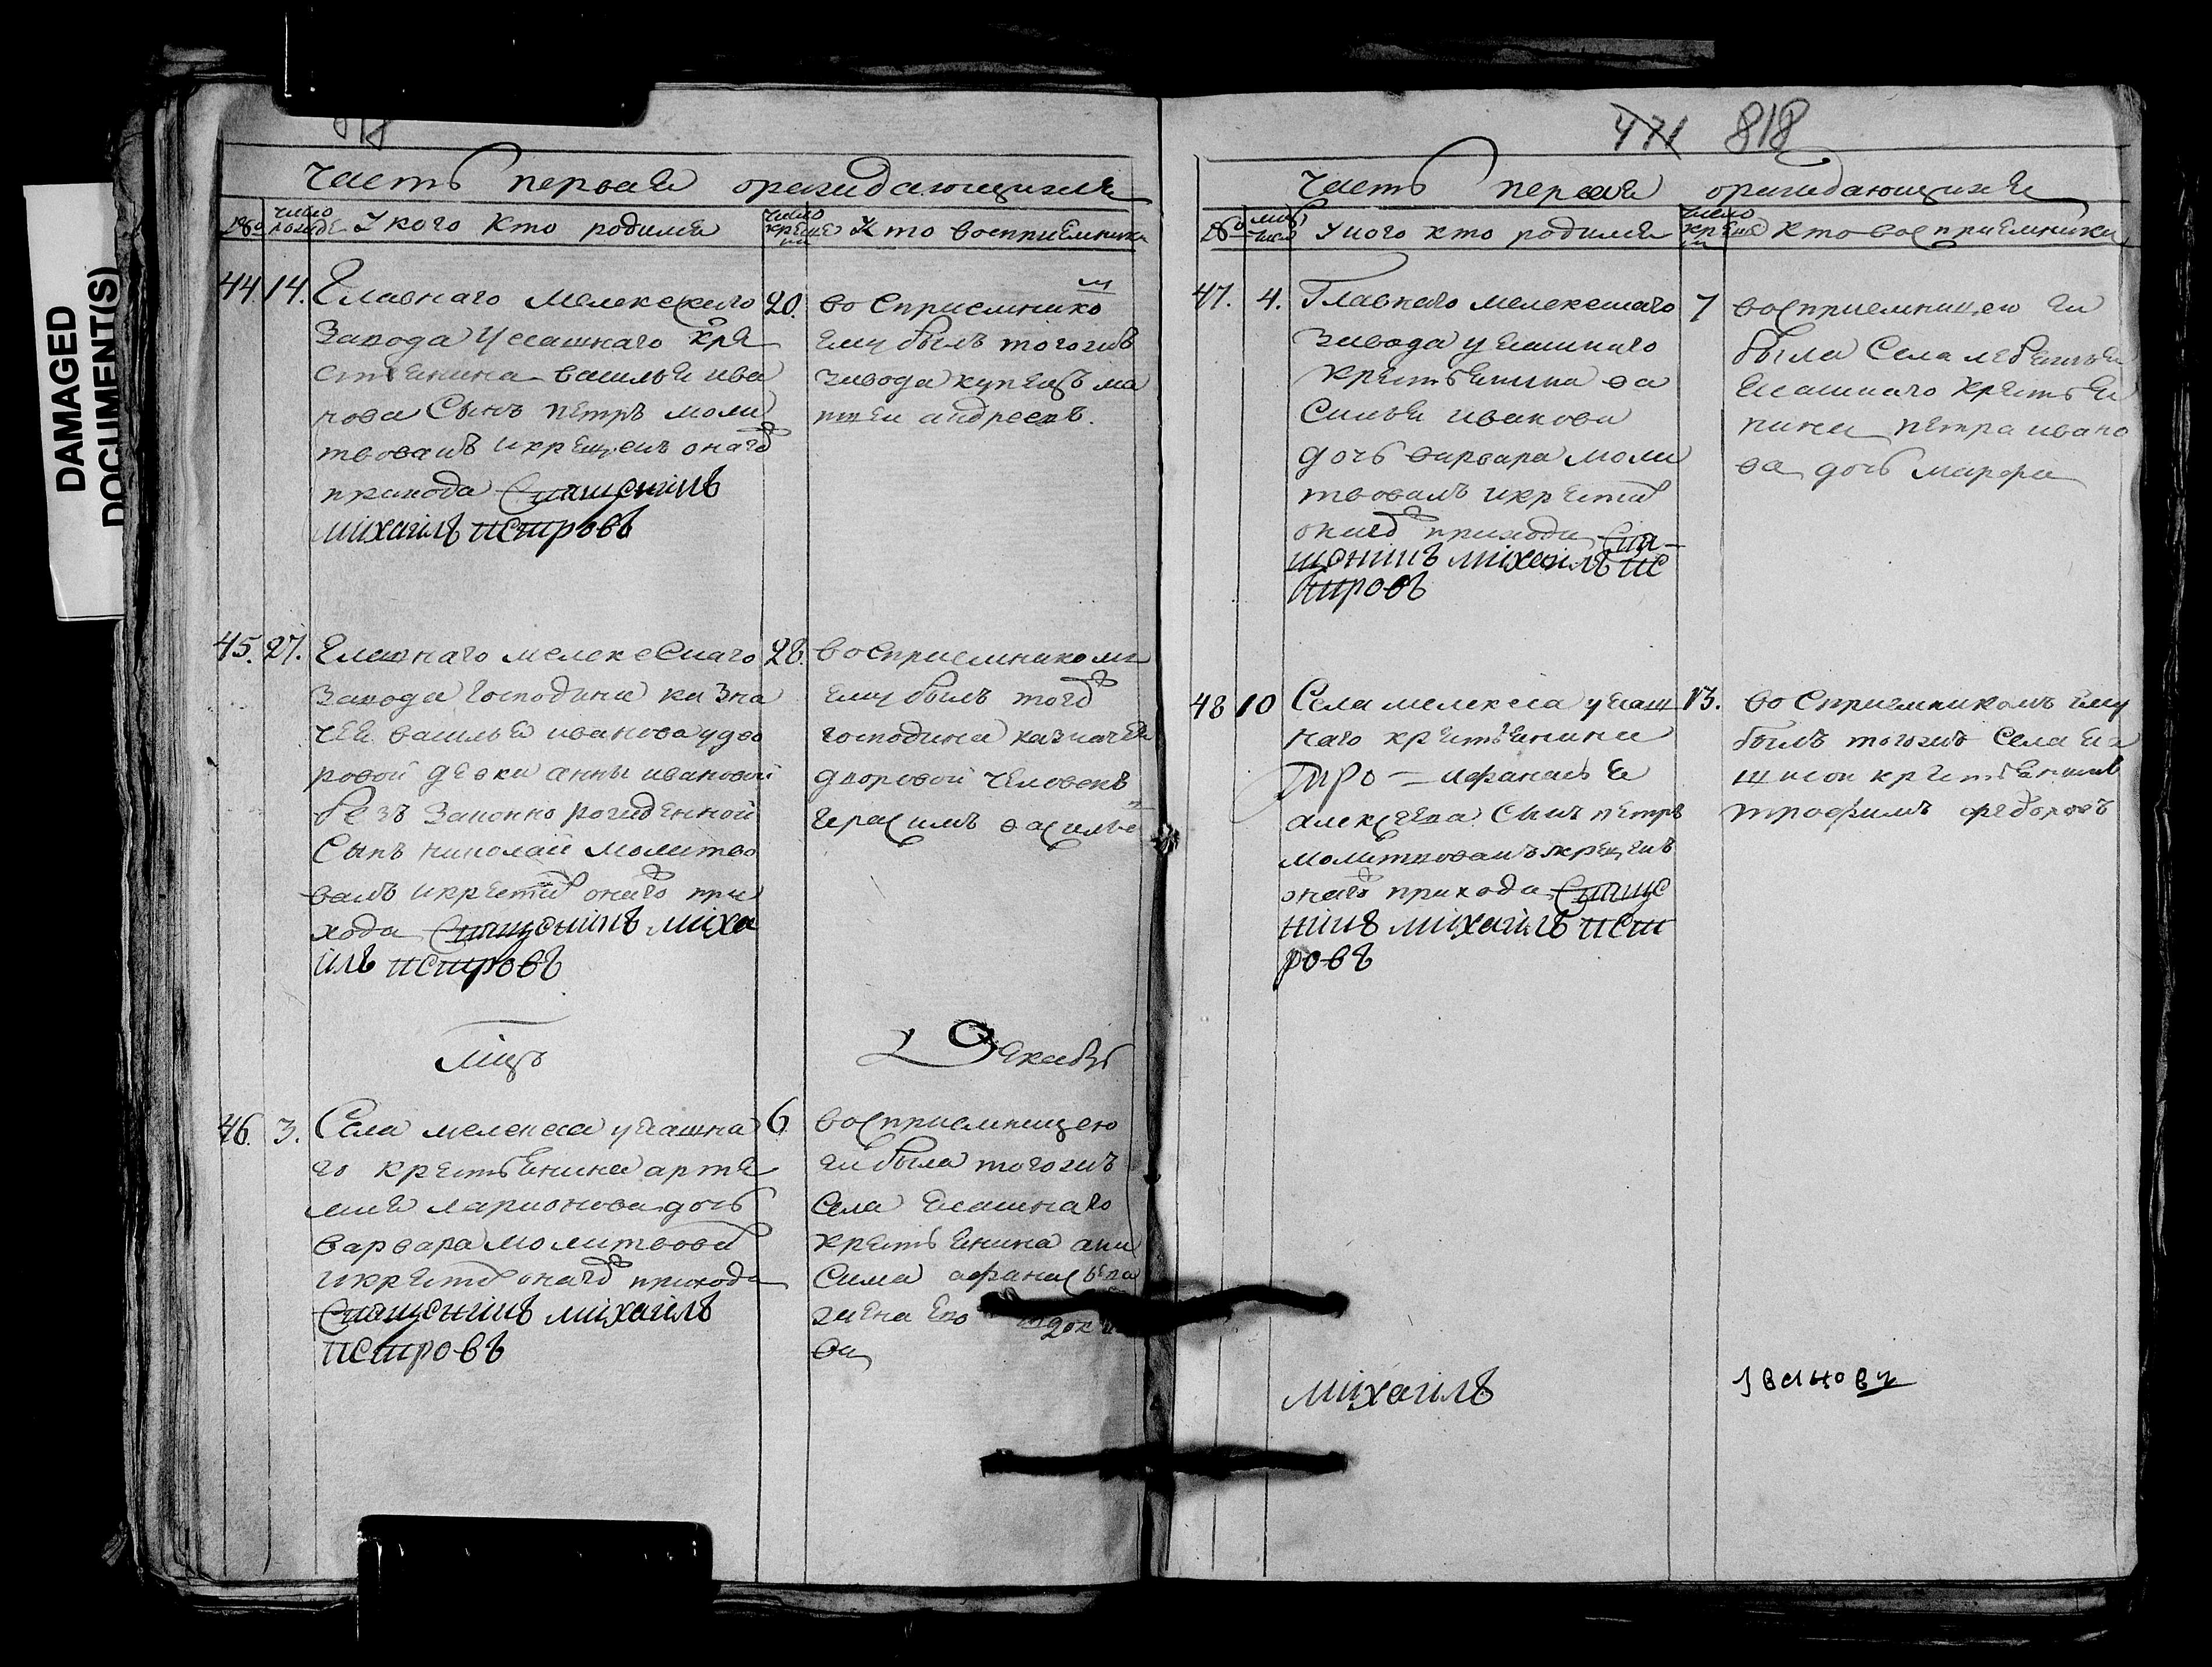 DAMAGED
DOCUMENT(S)
часть первая ораждающихся
число рожде
У кого кто родился
число креще
Кто восприемники
44. 14.
Главнаго мелекескаго
завода у есашнаго кре
стьянина василья ива
нова Сынъ петръ моли
твованъ икрещенъ онаго
прихода Священникъ
михаилъ петровъ
20.
восприемнико
ему былъ тогожъ
завода купецъ ма
тфеи андреевъ.
45. 27.
Главнаго мелекескаго
завода Господина казна
чея василья иванова удво
ровой девки анны ивановой
безъ законно рожденной
Сынъ николай молитво
валъ икрести онаго при
хода Священникъ миха
илъ петровъ
28.
восприемникомъ
ему былъ того
господина казначея
дворовой человекъ
герасимъ василье
мцъ Декабь
46. 3.
Села мелекеса у ясашна
го крестьянина арте
мия ларионова дочь
варвара молитвова
икрести онаго прихода
Священникъ михаилъ
петровъ
6
восприемницею
ей была тогожъ
Села ясашнаго
крестьянина ани
Сима афанасьева
жена ево
471 818
часть первая ораждающихся
У кого кто родился
число креще
Кто восприемники
47. 4.
Главнаго мелекескаго
завода у ясашнаго
крестьянина ва
Силья иванова
дочь варвара моли
твовалъ икрести
онаго прихода Свя-
щенникъ михаилъ пе
тровъ
7
восприемницею ей
была Села лебяжья
ясашнаго крестья
нина петра ивано
ва дочь марфа
48 10
Села мелекеса у ясаш
наго крестьянина
афанасья
алексеева Сынъ петръ
молитвованъ икрещенъ
онаго прихода Священ
никъ михаилъ пет
ровъ
13.
воСприемникомъ ему
былъ тогожъ Села
крестьянинъ
трофимъ федоровъ
михаилъ
Ивановъ